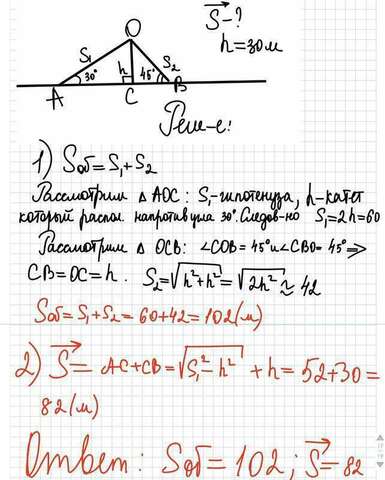 S⃗-?
h=30м
O
S₁
S₂
30°
h
45°
A
C
B
Реш-е:
1) Sоб=S₁+S₂
Рассмотрим △ АОС: S₁-гипотенуза, h-катет
который распол. напротив угла 30°. Следов-но S₁=2h=60
Рассмотрим △ ОСВ: ∠COB=45° и ∠CBO=45° ⇒
CB=OC=h. S₂=√h²+h²=√2h²≈42
Sоб=S₁+S₂=60+42=102(м)
2) S⃗= AC+CB=√S₁²-h² +h=52+30=
82(м)
Ответ: Sоб=102; S⃗=82